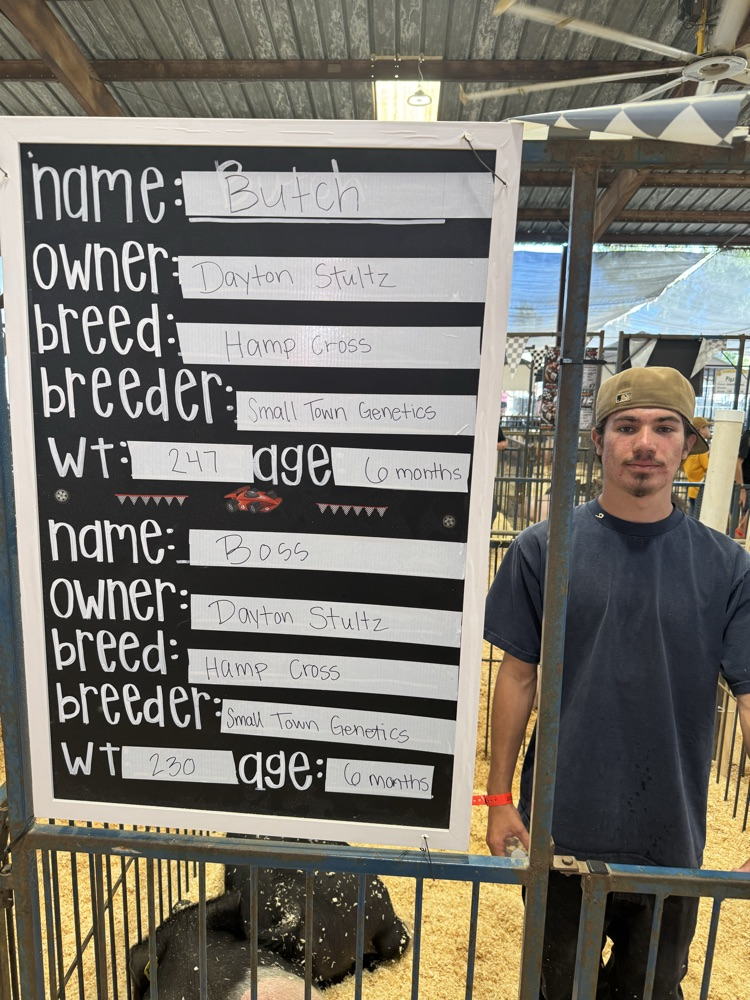 name: Butch
owner: Dayton Stultz
breed: Hamp Cross
breeder: Small Town Genetics
wt: 247 age 6 months
name: Boss
owner: Dayton Stultz
breed: Hamp Cross
breeder: Small Town Genetics
wt 230 age: 6 months